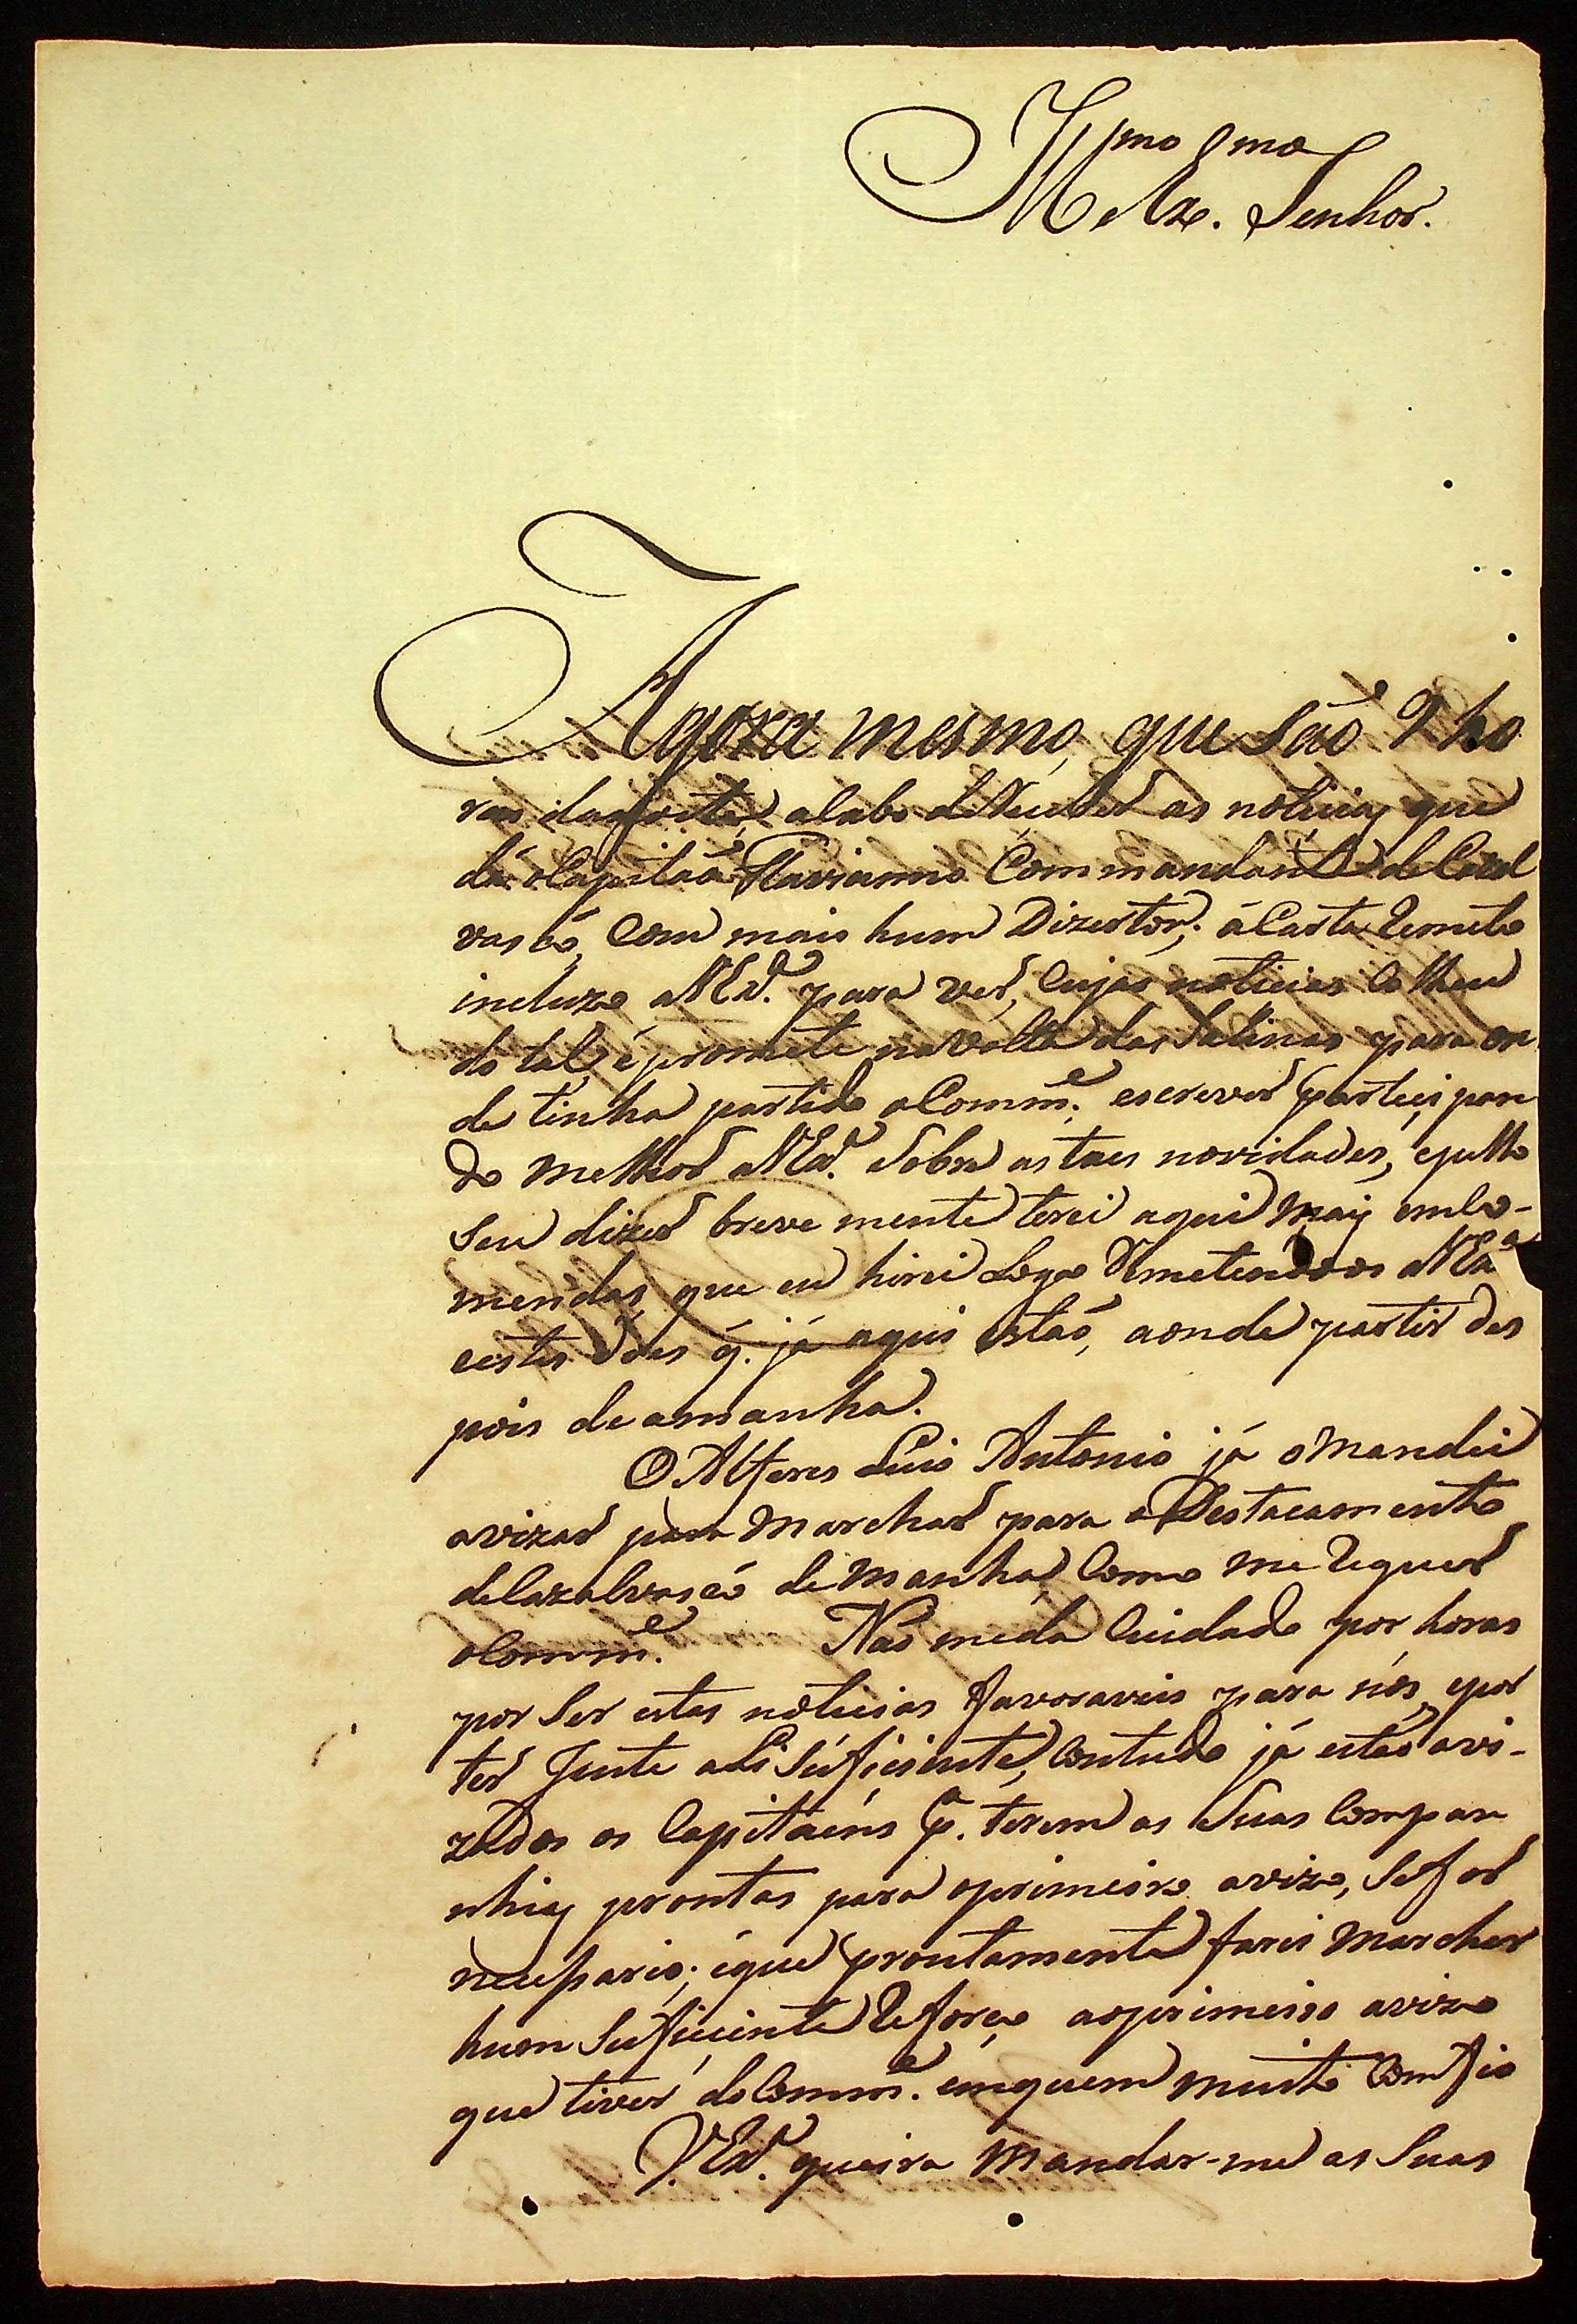 Illmo e Exmo Senhor.
Agora mesmo, que são 9 ho
ras da noite, acabo de receber as noticias que
dá o Capitaõ Flavianno Commandante de Cazal
vasco, com mais hum Dizertor; a Carta remeto
incluza a V Exa. para ver, cujas noticias colheu
do tal é promete na volta das Salinas para on
de tinha partido o Comme. escrever participan
do melhor a V Exa. sobre as taes novidades, e pello
seu dizer breve mente terei aqui mais emco-
mendas, que eu hirei logo remetendo os a V Exa
e estes dous q. já aqui estaõ, aonde partir des
pois de amanha.
O Alferes Luis Antonio já o mandei
avizar para marchar para o Destacamento
de Cazalvasco de manhã como me requer
o Comme. Naõ me dá cuidado por horas
por ser estas noticias favoraveis para nós, e por
ter Jente ali suficiente, contudo já estaõ avi-
zados os Capitaéns pa. terem as suas Compan
nhias prontas para o primeiro avizo, se for
necessario; é que prontamente farei marchar
hum suficiente reforço ao primeiro avizo
que tiver do Comme. em quem muito comfio
V. Exa. queira mandar-me as suas